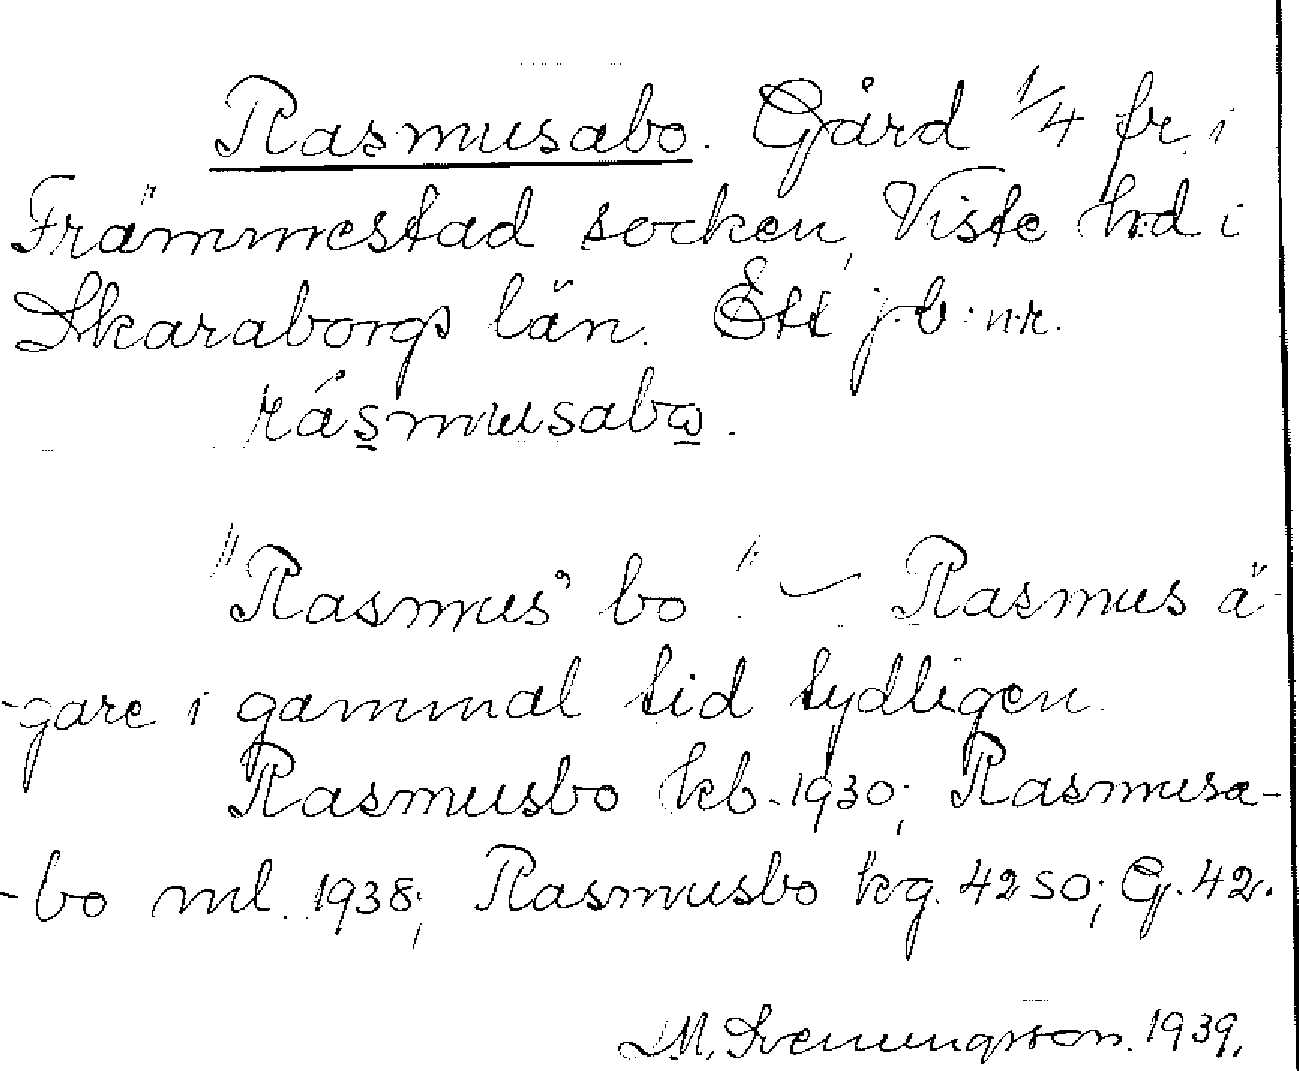 Rasmusabo. Gård 1/4 fr. i
Främmestad socken, Viste hd i
Skaraborgs län. Ett jb.nr.
rásmusabo.
"Rasmus' bo". – Rasmus ä-
-gare i gammal tid tydligen.
Rasmusbo kb. 1930; Rasmusa-
-bo ml. 1938; Rasmusbo kg. 42 SO; G. 42.
M. Svenungsson. 1939.